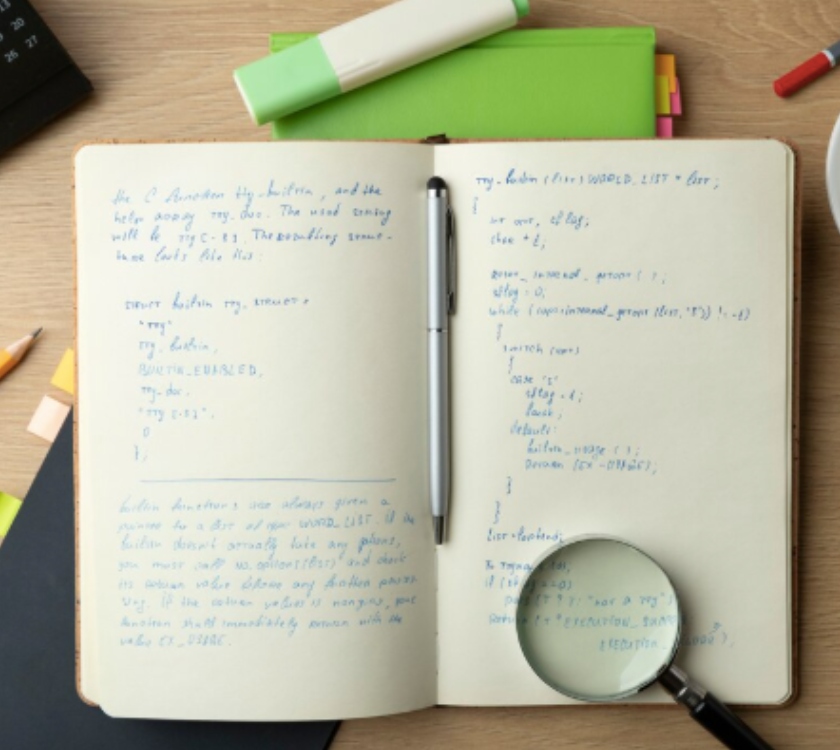 20
13
26 27
the C function tty_builtin, and the
tty_doc. The usage string
will be "tty [-s]". The resulting struc-
ture looks like this:
struct builtin tty_struct =
"tty"
tty_builtin,
BUILTIN_ENABLED,
tty_doc,
"tty [-s]",
0
};
builtin functions are always given a
pointer to a list of type WORD_LIST. If the
builtin doesn't actually take any options,
you must call no_options(list) and check
its return value before any further process-
ing. If the return value is nonzero, your
function should immediately return with the
value EX_USAGE.
tty_builtin (list) WORD_LIST * list;
{
int opt, sflag;
char * t;
reset_internal_getopt ( );
sflag = 0;
while ((opt = internal_getopt (list, "s")) != -1)
{
switch (opt)
{
case 's':
sflag = 1;
break;
default:
builtin_usage ( );
return (EX_USAGE);
}
}
list = loptend;
if
"not a tty")
return t ? EXECUTION_
EXECUTION_